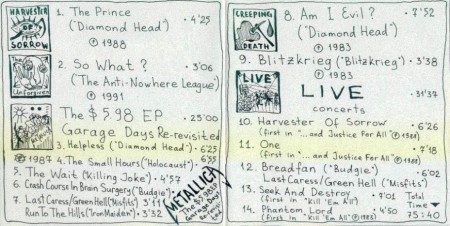 HARVESTER
OF
SORROW
1. The Prince • 4'25
("Diamond Head")
℗ 1988
The
Unforgiven
2. So What ? • 3'06
("The Anti-Nowhere League")
℗ 1991
The $5.98 EP • 25'00
Garage Days Re-revisited
3. Helpless ("Diamond Head") • 6'35
℗ 1987 4. The Small Hours ("Holocaust") • 6'35
5. The Wait (Killing Joke") • 4'57
6. Crash Course In Brain Surgery ("Budgie")
7. Last Caress/Green Hell ("Misfits") 3'11
Run To The Hills ("Iron Maiden") • 3'32
METALLICA
The $5.98 EP
Garage Days
CREEPING
DEATH
8. Am I Evil ? • 7'52
("Diamond Head")
℗ 1983
9. Blitzkrieg ("Blitzkrieg") • 3'38
℗ 1983
LIVE
LIVE • 31'37
concerts
10. Harvester Of Sorrow • 6'26
(first in "...and Justice For All" ℗ 1988)
11. One • 7'18
(first in "...and Justice For All" ℗ 1988)
12. Breadfan ("Budgie") • 6'02
Last Caress/Green Hell ("Misfits")
13. Seek And Destroy • 7'01 Total
(first in "Kill 'Em All") Time
14. Phantom Lord • 4'50 75:40
(first in "Kill 'Em All" ℗ 1983)